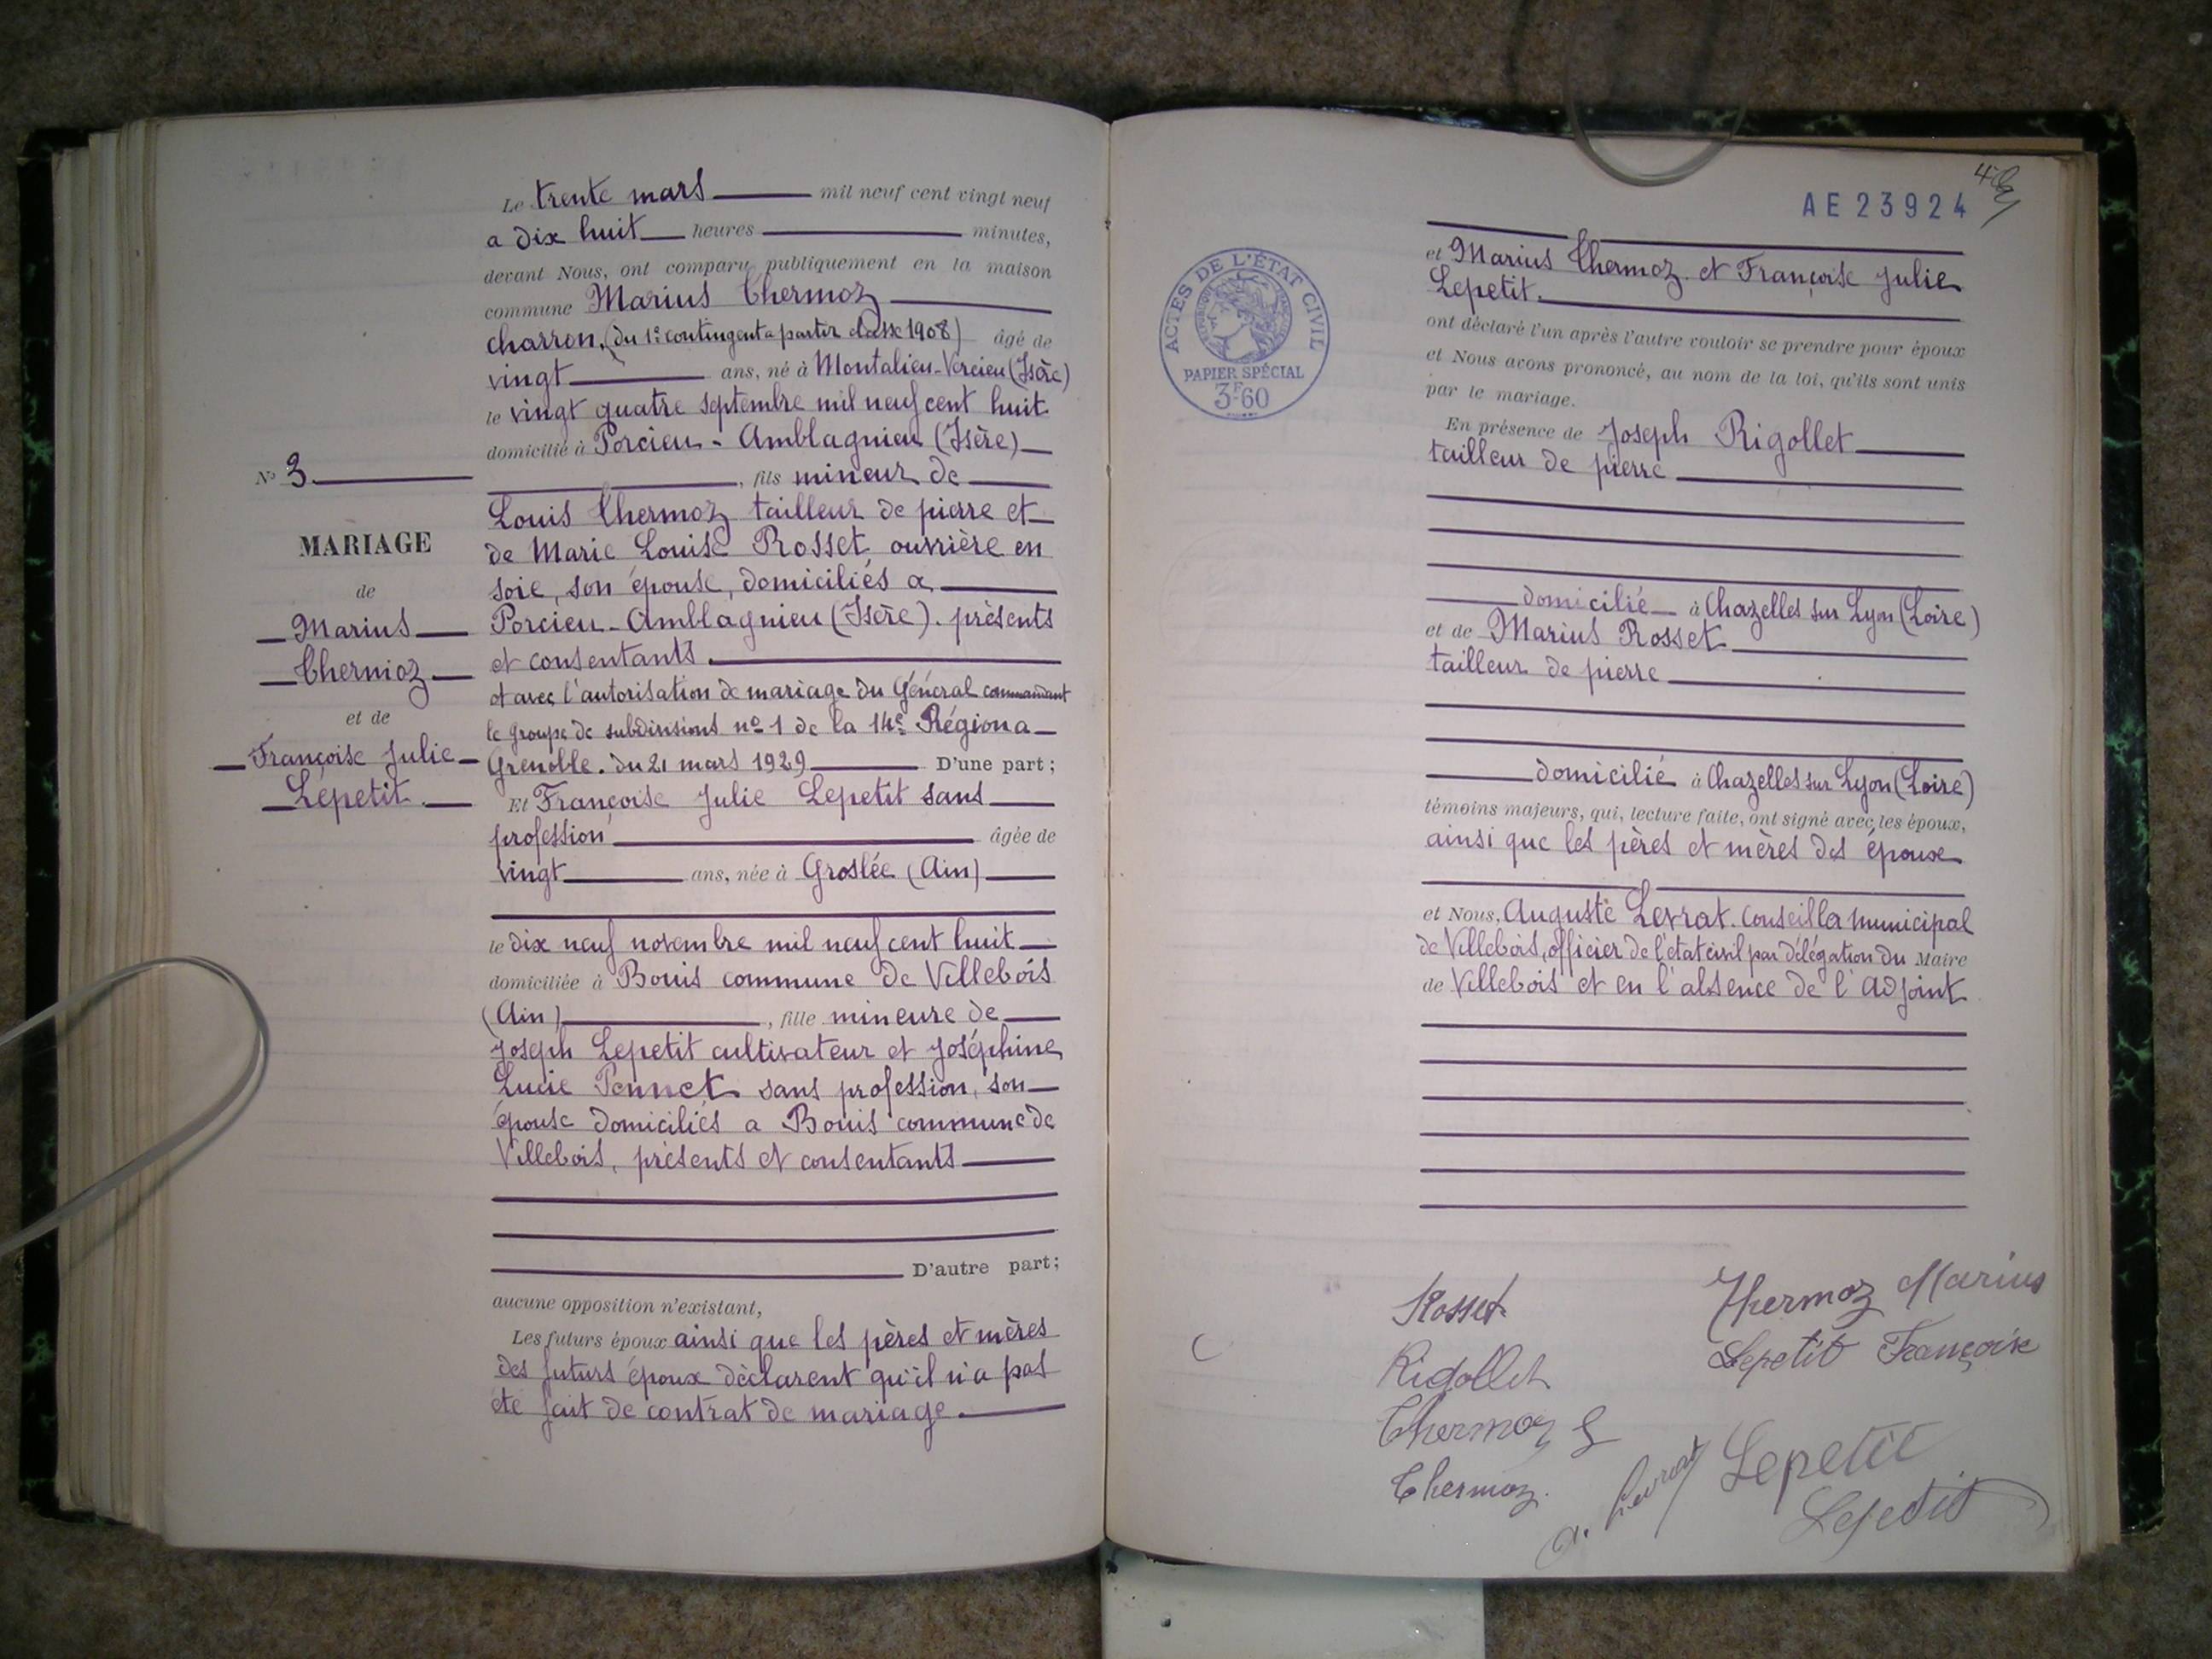 Le trente mars mil neuf cent vingt neuf
a dix huit heures minutes,
devant Nous, ont comparu publiquement en la maison
commune Marius Thermoz
charron, (du 1e contingent a partir classe 1908) âgé de
vingt ans, né à Montalieu-Vercieu (Isère)
le vingt quatre septembre mil neuf cent huit
domicilié à Porcieu-Amblagnieu (Isère)
, fils mineur de
Louis Thermoz tailleur de pierre et
de Marie Louise Rosset ouvrière en
soie, son épouse, domiciliés a
Porcieu-Amblagnieu (Isère). présents
et consentants.
et avec l'autorisation de mariage du Général commandant
le groupe de subdivisions no 1 de la 14e Région a
Grenoble. du 21 mars 1929 D'une part;
Et Françoise Julie Lepetit sans
profession âgée de
vingt ans, née à Groslée (Ain)
le dix neuf novembre mil neuf cent huit
domiciliée à Bouis commune de Villebois
(Ain), fille mineure de
Joseph Lepetit cultivateur et Joséphine
Lucie Ponnet sans profession, son
épouse domiciliés a Bouis commune de
Villebois, présents et consentants
D'autre part;
aucune opposition n'existant,
Les futurs époux ainsi que les pères et mères
des futurs époux déclarent qu'il n'a pas
été fait de contrat de mariage.
No 3
MARIAGE
de
Marius
Thermoz
et de
Françoise Julie
Lepetit.
AE23924
ACTES DE L'ÉTAT CIVIL
PAPIER SPÉCIAL
3F60
et Marius Thermoz. et Françoise Julie
Lepetit.
ont déclaré l'un après l'autre vouloir se prendre pour époux
et Nous avons prononcé, au nom de la loi, qu'ils sont unis
par le mariage.
En présence de Joseph Rigollet
tailleur de pierre
domicilié à Chazelles sur Lyon (Loire)
et de Marius Rosset
tailleur de pierre
domicilié à Chazelles sur Lyon (Loire)
témoins majeurs, qui, lecture faite, ont signé avec les époux,
ainsi que les pères et mères des époux
et Nous, Auguste Levrat. Conseiller municipal
de Villebois, officier de l'état civil par délégation du Maire
de Villebois et en l'absence de l'adjoint
Rosset
Thermoz Marius
Rigollet
Lepetit Françoise
Thermoz
Thermoz.
A. Levrat
Lepetit
Lepetit